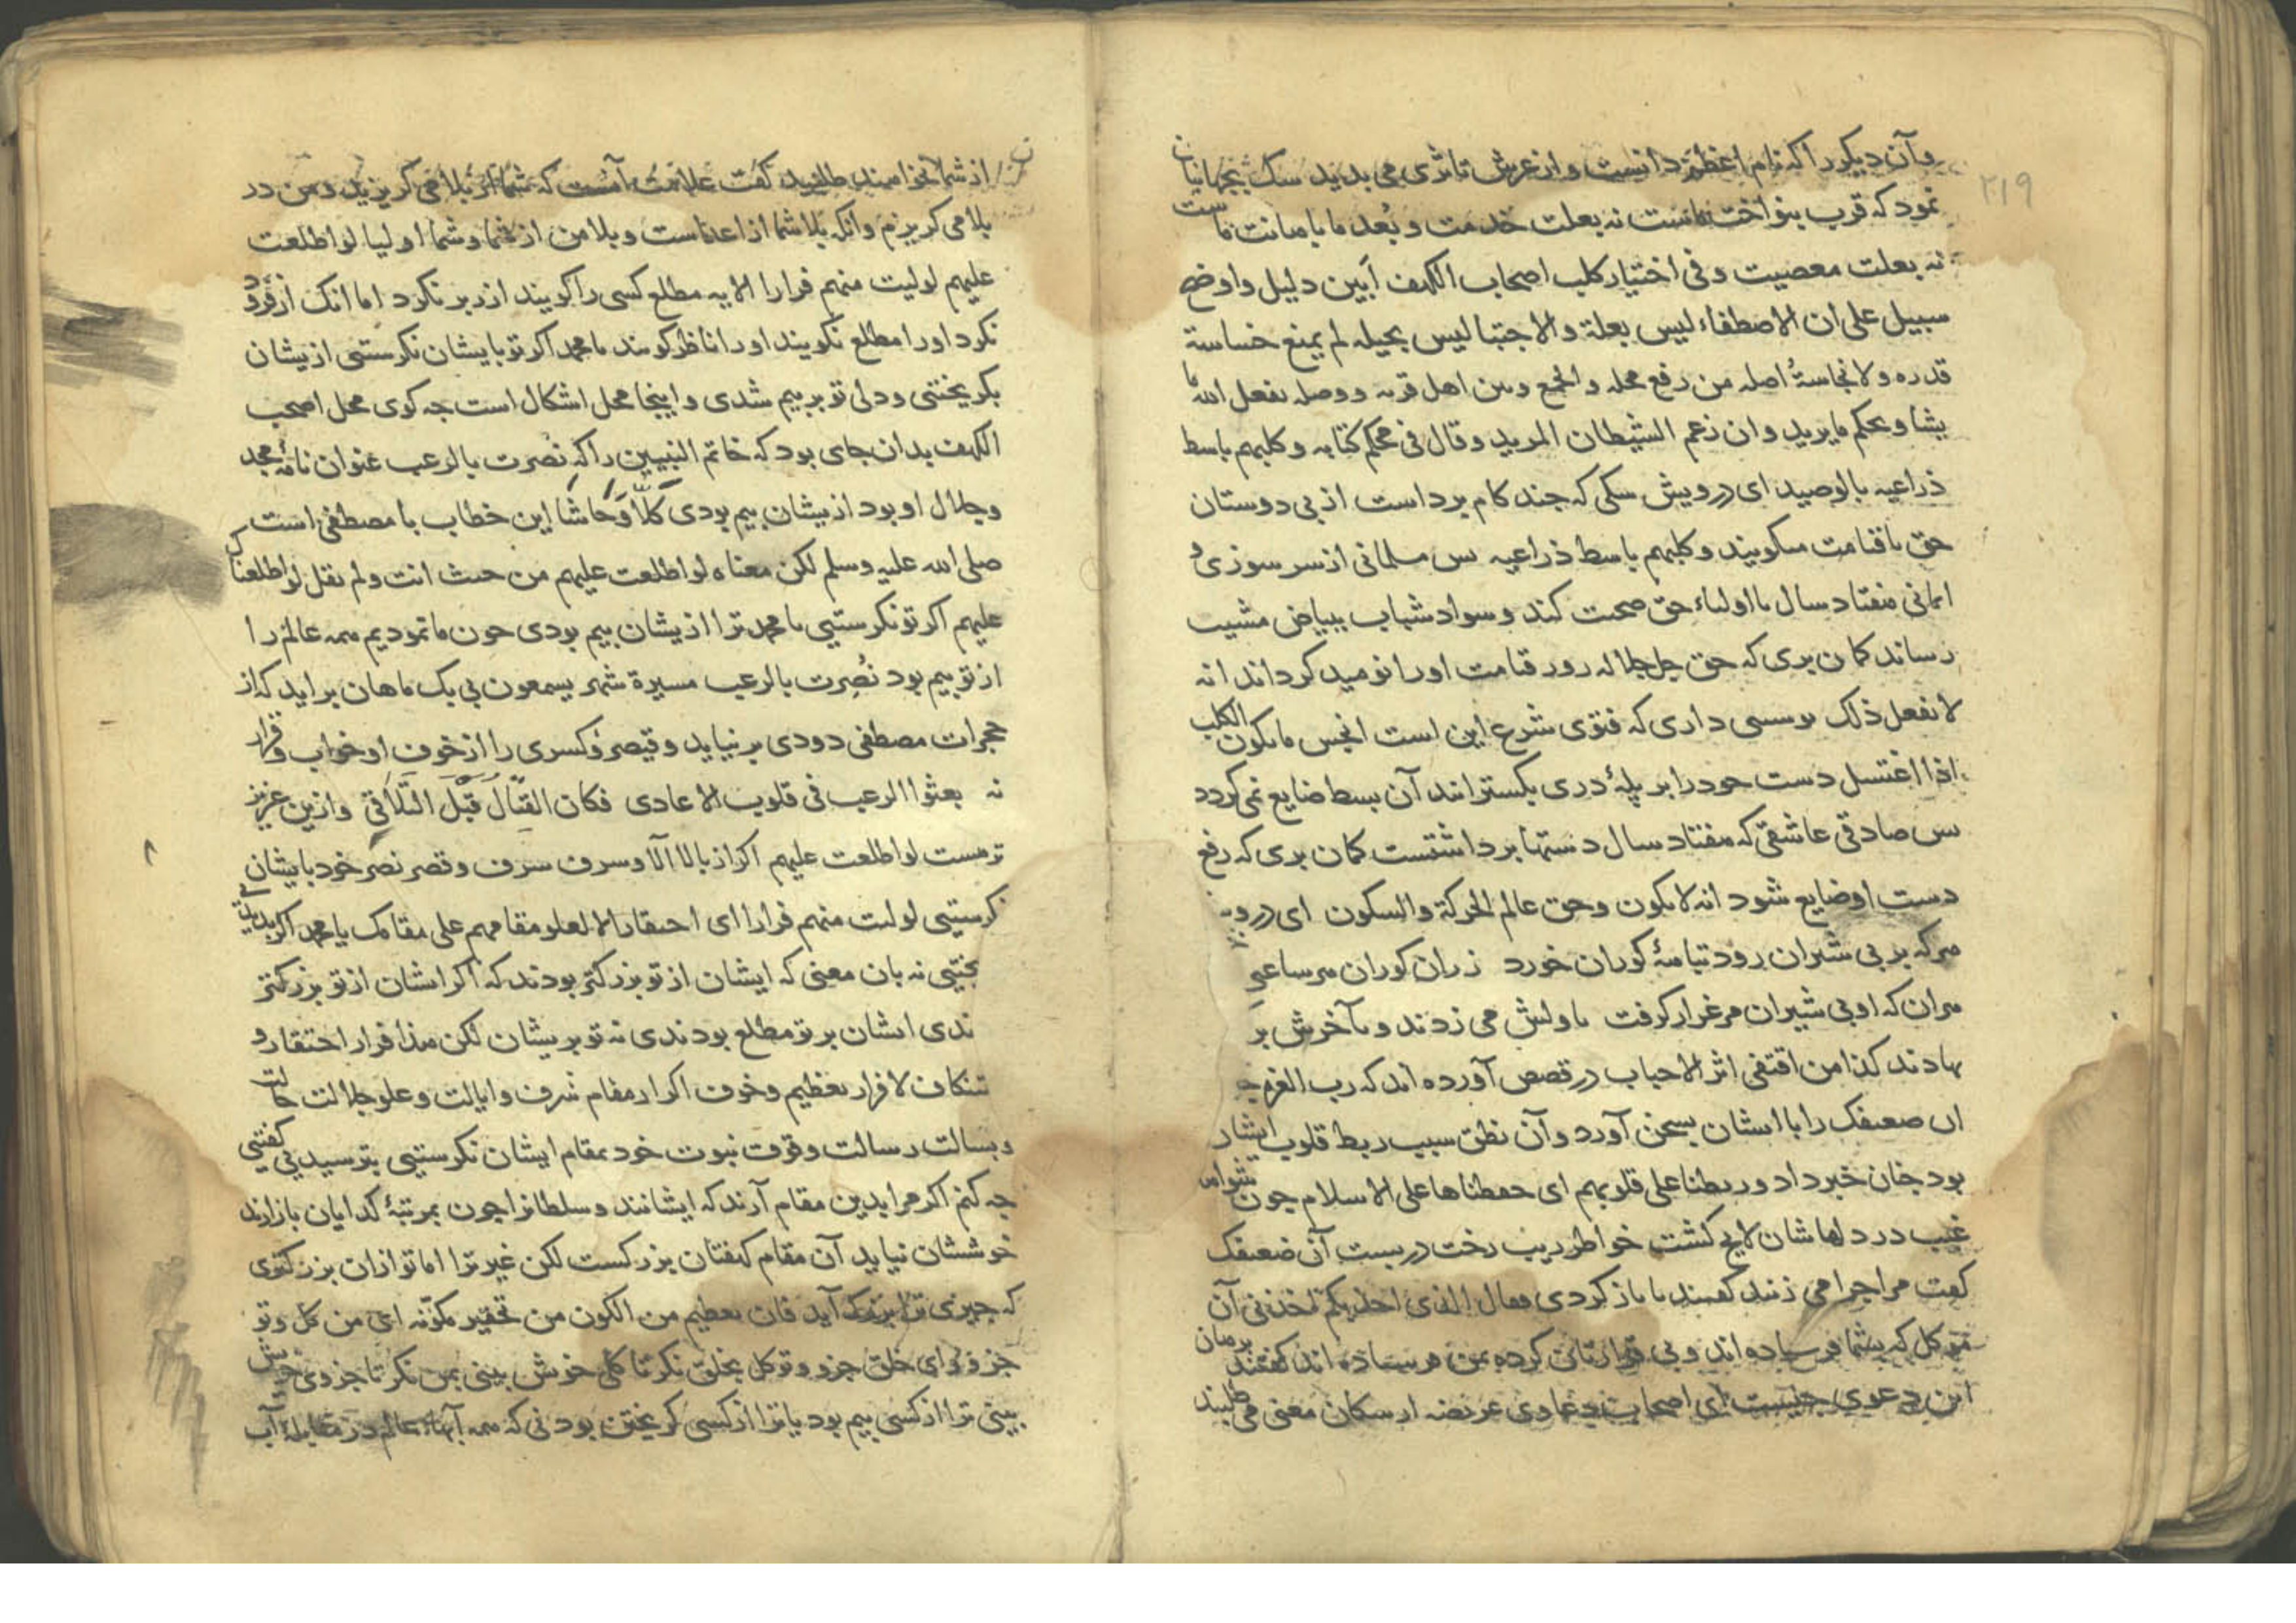 ۲۱۹
وآن دیکر را که نام اعظم دانست واز عرش تا ثری می بدید سک بجهانیان
نمود که قرب بنواخت ماست نه بعلت خدمت و بُعد ما باهانت ماست
نه بعلت معصیت وفی اختیار کلب اصحاب الکهف اَبین دلیل واوضح
سبیل علی ان الاصطفاء لیس بعلة والاجتبا لیس بحیله لم یمنع خساسة
قدره ولا نجاسةُ اصله من رفع محله والجمع وبین اهل قربه ووصله یفعل الله ما
یشا ویحکم ما یرید وان زعم الشیطان المرید وقال فی محکم کتابه وکلبهم باسط
ذراعیه بالوصید ای درویش سکی که جند کام برداست از پی دوستان
حق تا قیامت میکویند وکلبهم باسط ذراعیه بس مسلمانی از سر سوزی و
ایمانی هفتاد سال با اولیاء حق صحبت کند وسواد شباب ببیاض مشیب
رساند کمان بری که حق جل جلاله روز قیامت اورا نومید کرداند انه
لا یفعل ذلک بوسبی داری که فتوی شرع این است انجس ما یکون الکلب
اذا اغتسل دست خودرا بر پلهٔ دری بکسترانند آن بسط ضایع نمی کردد
بس صادقی عاشقی که هفتاد سال دستها برداشتست کمان بری که رفع
دست او ضایع شود انه لا یکون وحق عالم الحرکة والسکون ای درویش
هر که بر پی شیران رود تبامهٔ کوران خورد زران کوران هر ساعی
هران که او پی شیران مرغزار کرفت باولش می زدند وبآخرش بر
نهادند کذا من اقتفی اثر الاحباب در قصص آورده اند که رب العزه
ان ضعیفک را با ایشان بسخن آورد وآن نطق سبب ربط قلوب ایشان
بود جنان خبر داد وربطنا علی قلوبهم ای حفظناها علی الاسلام جون شواهد
غیب در دلهاشان لایح کشت خواطر ریب رخت دربست آن ضعیفک
کفت مرا جرا می زنید کفتند تا باز کردی فقال الذی اخذیکم اخذنی آن
موکل که بشما فرستاده اند وبی قرارتان کرده بمن فرستاده اند کفتند برهان
این دعوی جیست ای اصحاب دعاوی عریضه از سکان معنی می طلبند
از شما نخواهند طلبید کفت علامت آنست که شما از بلا می کریزید ومن در
بلا می کریزم وانکه بلا شما از اعداست وبلا من از شما وشما اولیا لو اطلعت
علیهم لولیت منهم فرارا الایه مطلع کسی را کویند از زبر نکرد اما انک از فرود
نکرد اورا مطلع نکویند اورا ناظر کویند یا محمد اکر تو بایشان نکرستی ازیشان
بکریختی ودل تو بر بیم شدی واینجا محل اشکال است جه کوی محل اصحب
الکهف بدان جای بود که خاتم النبیین را که نُصرت بالرعب عنوان نامهٔ مجد
وجلال او بود ازیشان بیم بودی کَلّا وَحَاشا این خطاب با مصطفی است
صلی الله علیه وسلم لکن معناه لو اطلعت علیهم من حیث انت ولم یقل لو اطلعناک
علیهم اکر تو نکرستیی یا محمد ترا ازیشان بیم بودی جون ما نمودیم همه عالم را
از تو بیم بود نُصِرت بالرعب مسیرة شهر یسمعون بی یک ماهان برآید که از
حجرات مصطفی دودی برنیاید وقیصر وکسری را از خوف او خواب وقرار
نه بعثوا الرعب فی قلوب الاعادی فکان القِتَالُ قَبْلَ التَّلاقِی وازین عزیز
ترهست لو اطلعت علیهم اکر از بالا الآ وسرف شرف وقصر نصر خود بایشان
نکرستیی لولیت منهم فرارا ای احتقارا لا لعلو مقامهم علی مقامک یا محمد اکر بدیدیی
بختیی نه بان معنی که ایشان از تو بزرکتر بودند که اکر ایشان از تو بزرکتر
ندی ایشان بر تو مطلع بودندی نه تو بریشان لکن هذا فرار احتقار و
تنکاف لا فرار تعظیم وخوف اکر از مقام شرف وایالت وعلو جلالت حالت
وبسالت رسالت وقوت نبوت خود بمقام ایشان نکرستیی بترسیدیی کفتیی
جه کنم اکر مرا بدین مقام آرند که ایشانند وسلطانرا جون بمرتبهٔ کدایان باز آرند
خوششان نیاید آن مقام کهفتان بزرکست لکن غیر ترا اما تو ازان بزرکتری
که جیزی ترا بزرک آید فان تعظیم من الکون من تحقیر مکوّنه ای من کل وتو
جزو وای خلق جزو وتو کل بخلق نکر تا کلی خوش بینی بمن نکر تا جزوی خوش
بینی ترا از کسی بیم بود یا ترا از کسی کریختن بود نی که همه آبهاء عالم در مقابله آب